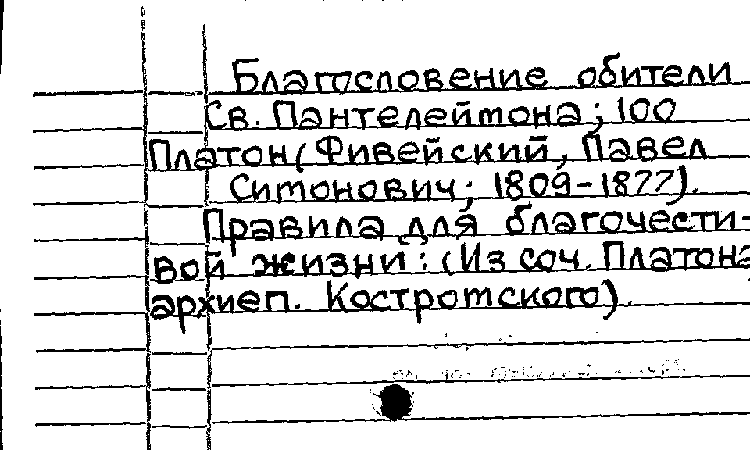 Благословение обители
Св. Пантелеймона; 100
Платон (Фивейский, Павел
Симонович; 1809-1877).
Правила для благочести-
вой жизни: (Из соч. Платона,
архиеп. Костромского).